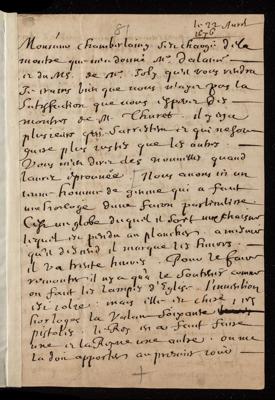 81
le 22 Avril
1676
Monsieur Chamberlaine s'est chargé de la
montre que m'a donné Mr.
et du Ms. de Mr. qu'il vous rendra
Je crains bien que vous n'ayez pas la
Satisfaction que vous esperez des
montres de M. Thuret. il y en a
plusieurs qui s'arrestent et qui ne sont
guere plus justes que les autres
Vous m'en direz des nouvelles quand
l'aurez éprouvée Nous avons ici un
homme de qui a fait
une horloge d'une façon particuliere
C'est un globe duquel il sort une chaisne
lequel est pendu au plancher a mesure
qu'il descend il marque les heures.
il va trente heures. Pour le faire
remonter il n'y a qu'à le soutenir comme
on fait les lampes d'Eglise. l'invention
est jolie. mais elle est chere, ses
horloges la valent soixante
pistoles. le Roy en a fait faire
une et la Reyne une autre. on me
la doit apporter au premier jour